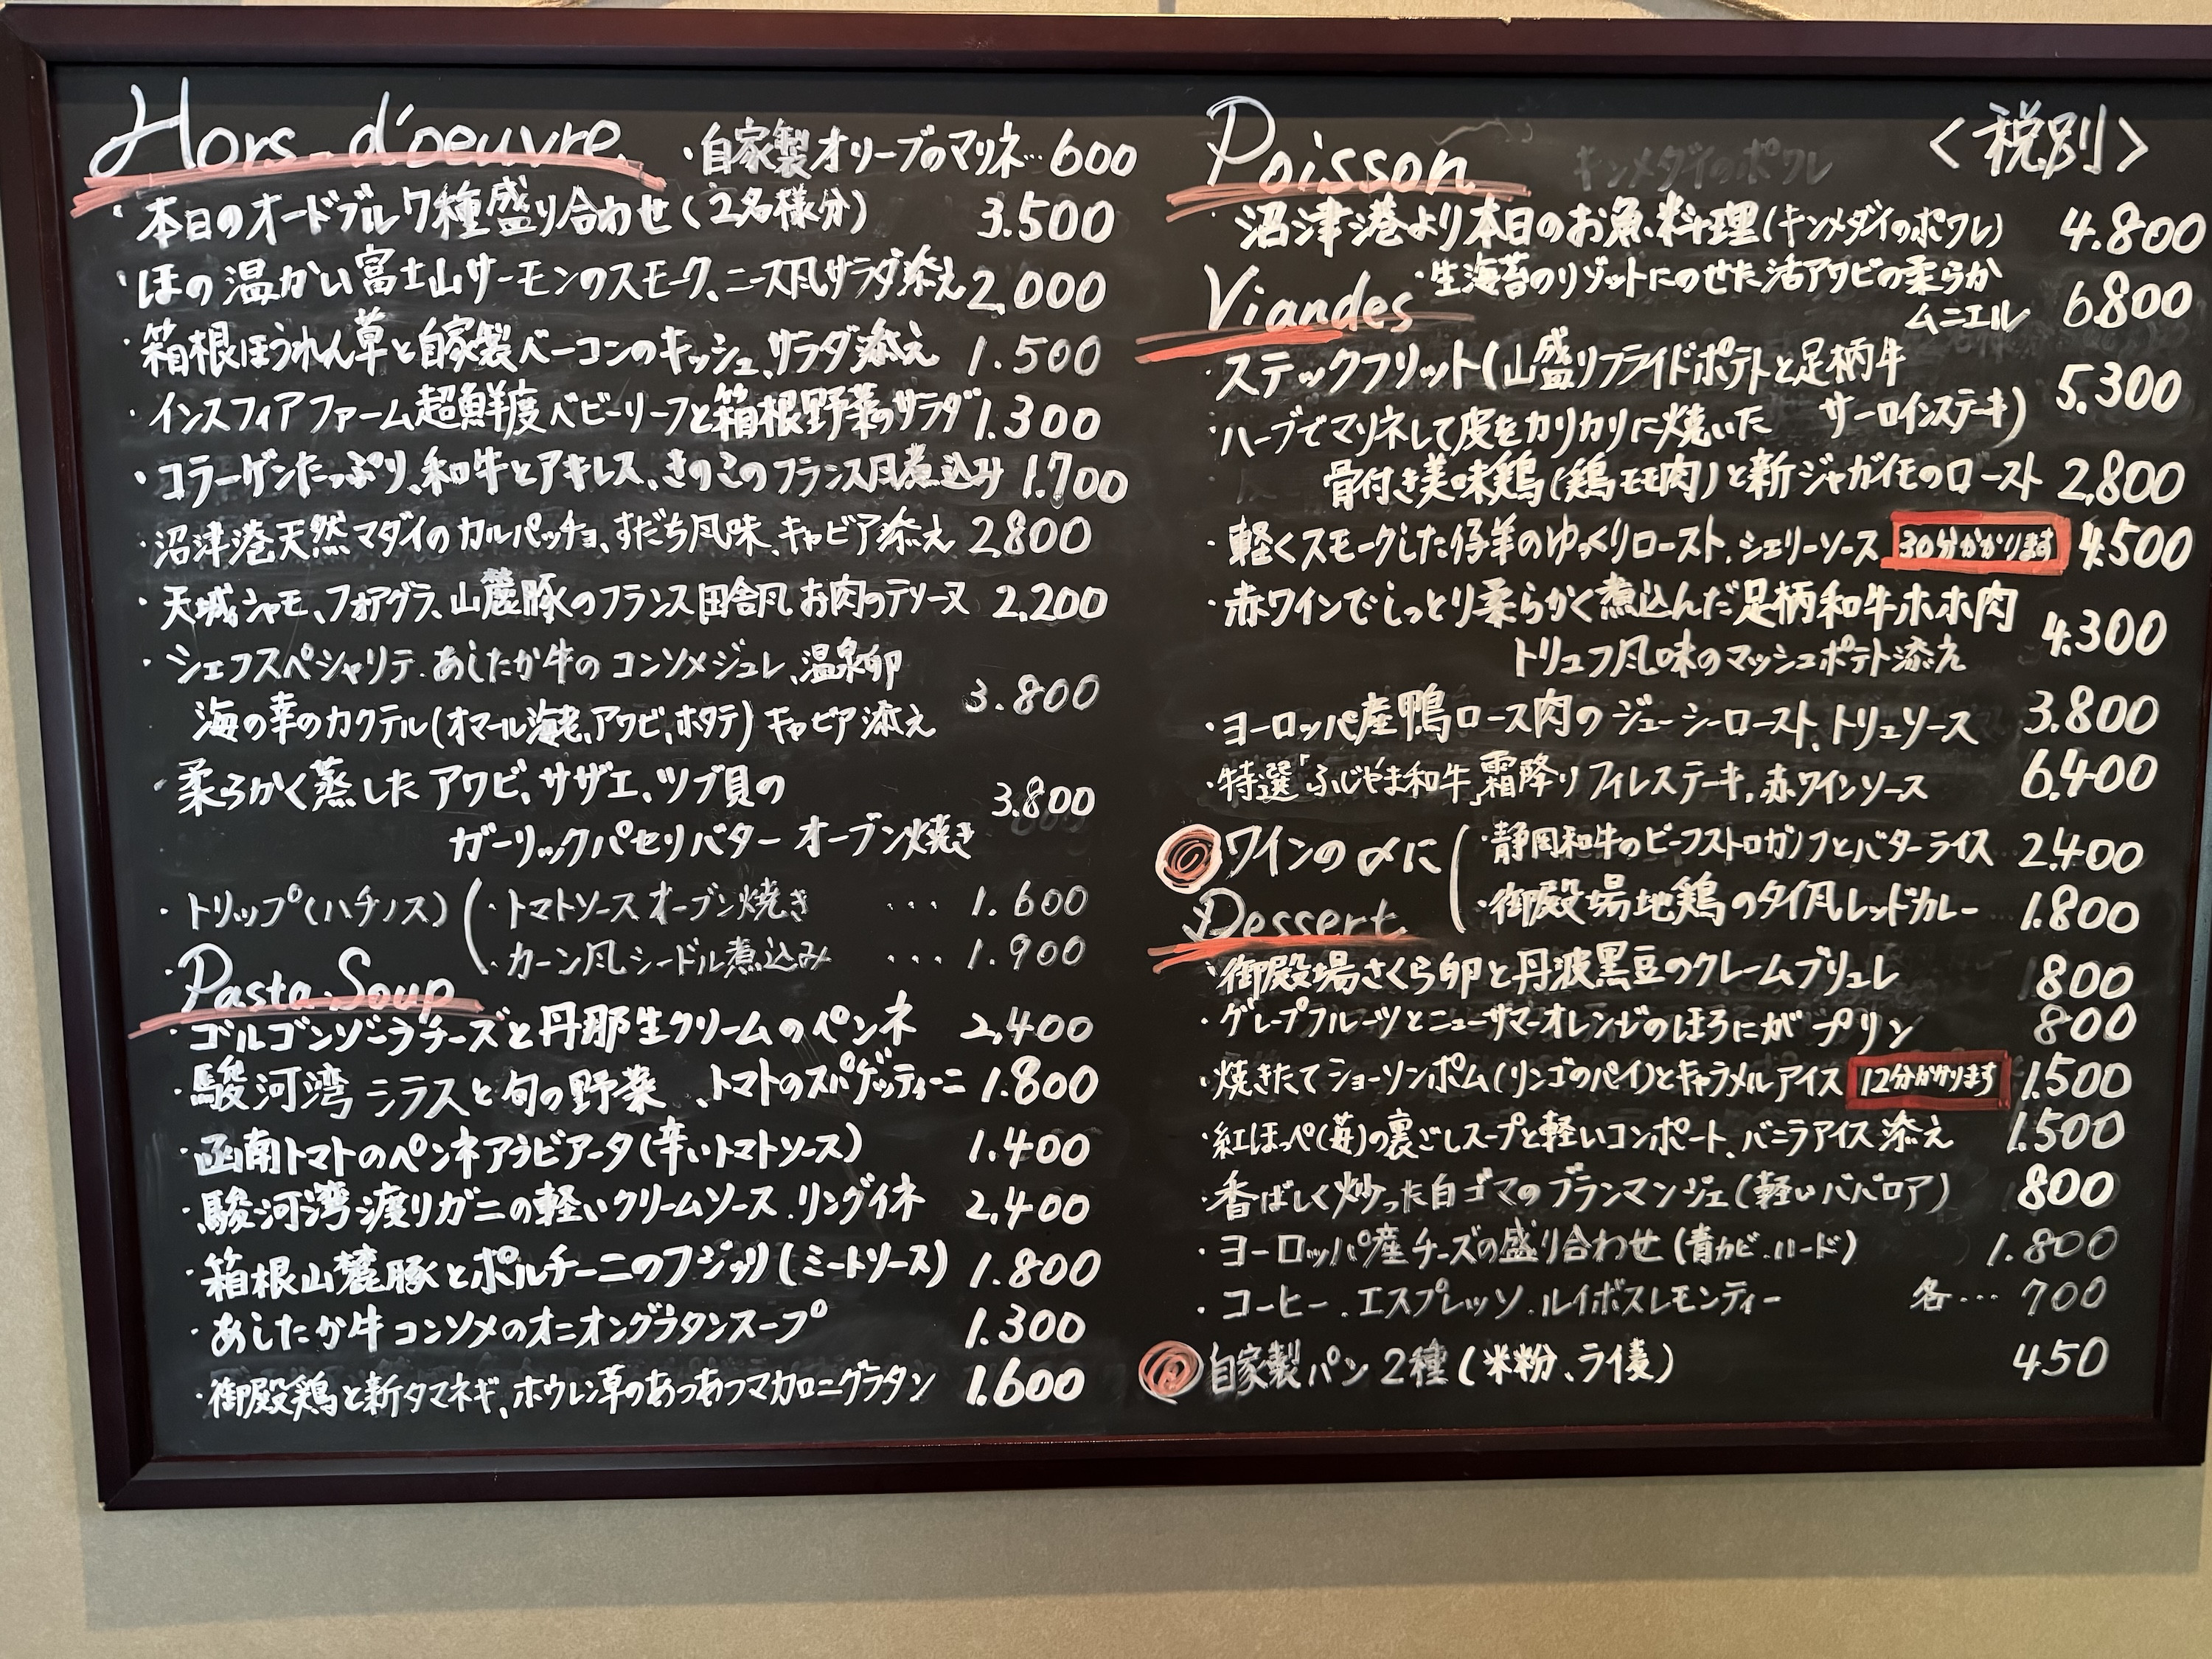 Hors-d'oeuvre ・自家製オリーブのマリネ…600
・本日のオードブル7種盛り合わせ(2名様分) 3.500
・ほの温かい富士山サーモンのスモーク、ニース風サラダ添え 2,000
・箱根ほうれん草と自家製ベーコンのキッシュ、サラダ添え 1.500
・インスフィアファーム超鮮度ベビーリーフと箱根野菜のサラダ 1.300
・コラーゲンたっぷり、和牛とアキレス、きのこのフランス風煮込み 1.700
・沼津港天然マダイのカルパッチョ、すだち風味、キャビア添え 2.800
・天城シャモ、フォアグラ、山麓豚のフランス田舎風お肉のテリーヌ 2.200
・シェフスペシャリテ.あしたか牛のコンソメジュレ、温泉卵
海の幸のカクテル(オマール海老、アワビ、ホタテ)キャビア添え 3.800
・柔らかく蒸したアワビ、サザエ、ツブ貝の
ガーリックパセリバターオーブン焼き 3.800
・トリップ(ハチノス)
・トマトソースオーブン焼き … 1.600
・カーン風シードル煮込み … 1.900
Pasta.Soup
・ゴルゴンゾーラチーズと丹那生クリームのペンネ 2,400
・駿河湾シラスと旬の野菜、トマトのスパゲッティーニ 1.800
・函南トマトのペンネアラビアータ(辛いトマトソース) 1.400
・駿河湾渡りガニの軽いクリームソース.リングイネ 2,400
・箱根山麓豚とポルチーニのフジッリ(ミートソース) 1.800
・あしたか牛コンソメのオニオングラタンスープ 1.300
・御殿鶏と新タマネギ、ホウレン草のあつあつマカロニグラタン 1.600
Poisson キンメダイのポワレ <税別>
・沼津港より本日のお魚料理(キンメダイのポワレ) 4.800
・生海苔のリゾットにのせた活アワビの柔らか
ムニエル 6.800
Viandes
・ステックフリット(山盛りフライドポテトと足柄牛
サーロインステーキ) 5.300
・ハーブでマリネして皮をカリカリに焼いた
骨付き美味鶏(鶏モモ肉)と新ジャガイモのロースト 2,800
・軽くスモークした仔羊のゆっくりロースト,シェリーソース 30分かかります 4.500
・赤ワインでしっとり柔らかく煮込んだ足柄和牛ホホ肉
トリュフ風味のマッシュポテト添え 4.300
・ヨーロッパ産鴨ロース肉のジューシーロースト、トリュソース 3.800
・特選「ふじやま和牛」霜降りフィレステーキ,赤ワインソース 6.400
ワインの〆に
・静岡和牛のビーフストロガノフとバターライス 2.400
・御殿場地鶏のタイ風レッドカレー 1.800
Dessert
・御殿場さくら卵と丹波黒豆のクレームブリュレ 800
・グレープフルーツとニューサマーオレンジのほろにがプリン 800
・焼きたてショーソンポム(リンゴのパイ)とキャラメルアイス 12分かかります 1.500
・紅ほっぺ(苺)の裏ごしスープと軽いコンポート、バニラアイス添え 1.500
・香ばしく炒った白ゴマのブランマンジェ(軽いババロア) 800
・ヨーロッパ産チーズの盛り合わせ(青カビ.ハード) 1.800
・コーヒー.エスプレッソ.ルイボスレモンティー 各… 700
自家製パン2種(米粉、ライ麦) 450